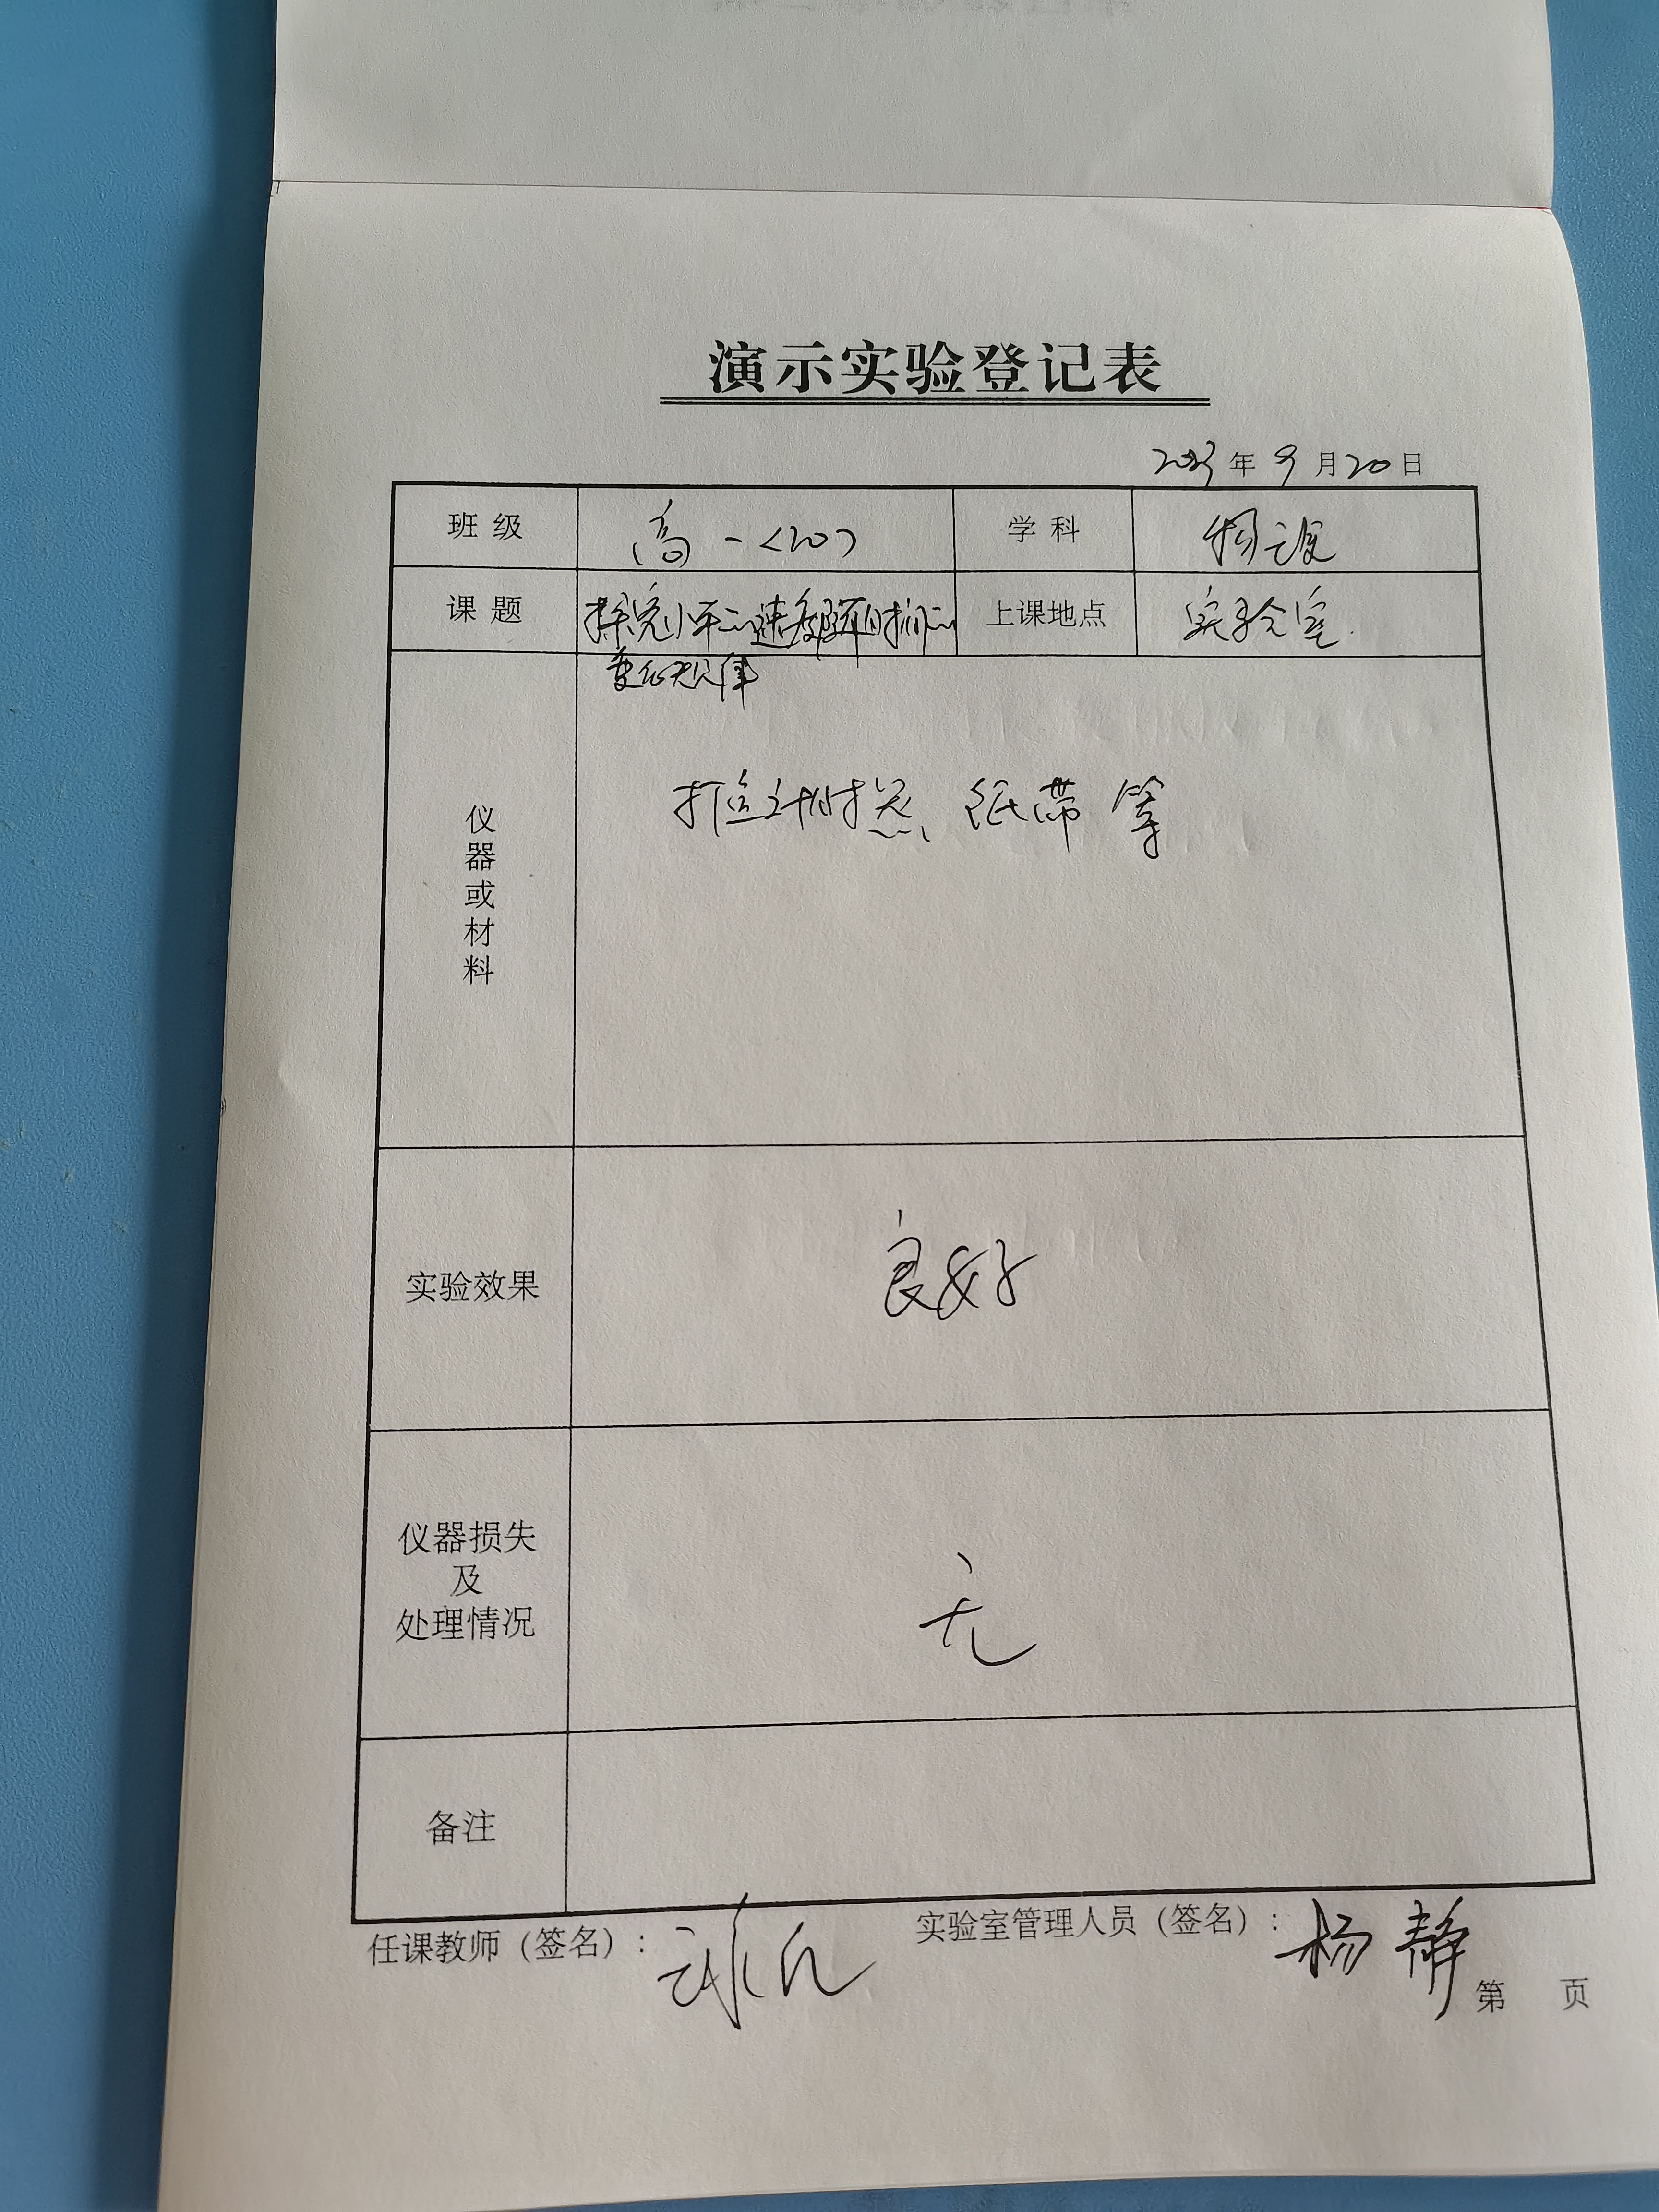 演示实验登记表
2023年9月20日
班级 高一<20> 学科 物理
课题 探究小车的速度随时间的 上课地点 实验室.
变化规律
仪器或材料 打点计时器、纸带等
实验效果 良好
仪器损失
及
处理情况 无
备注
任课教师(签名): 实验室管理人员(签名): 杨静
第 页